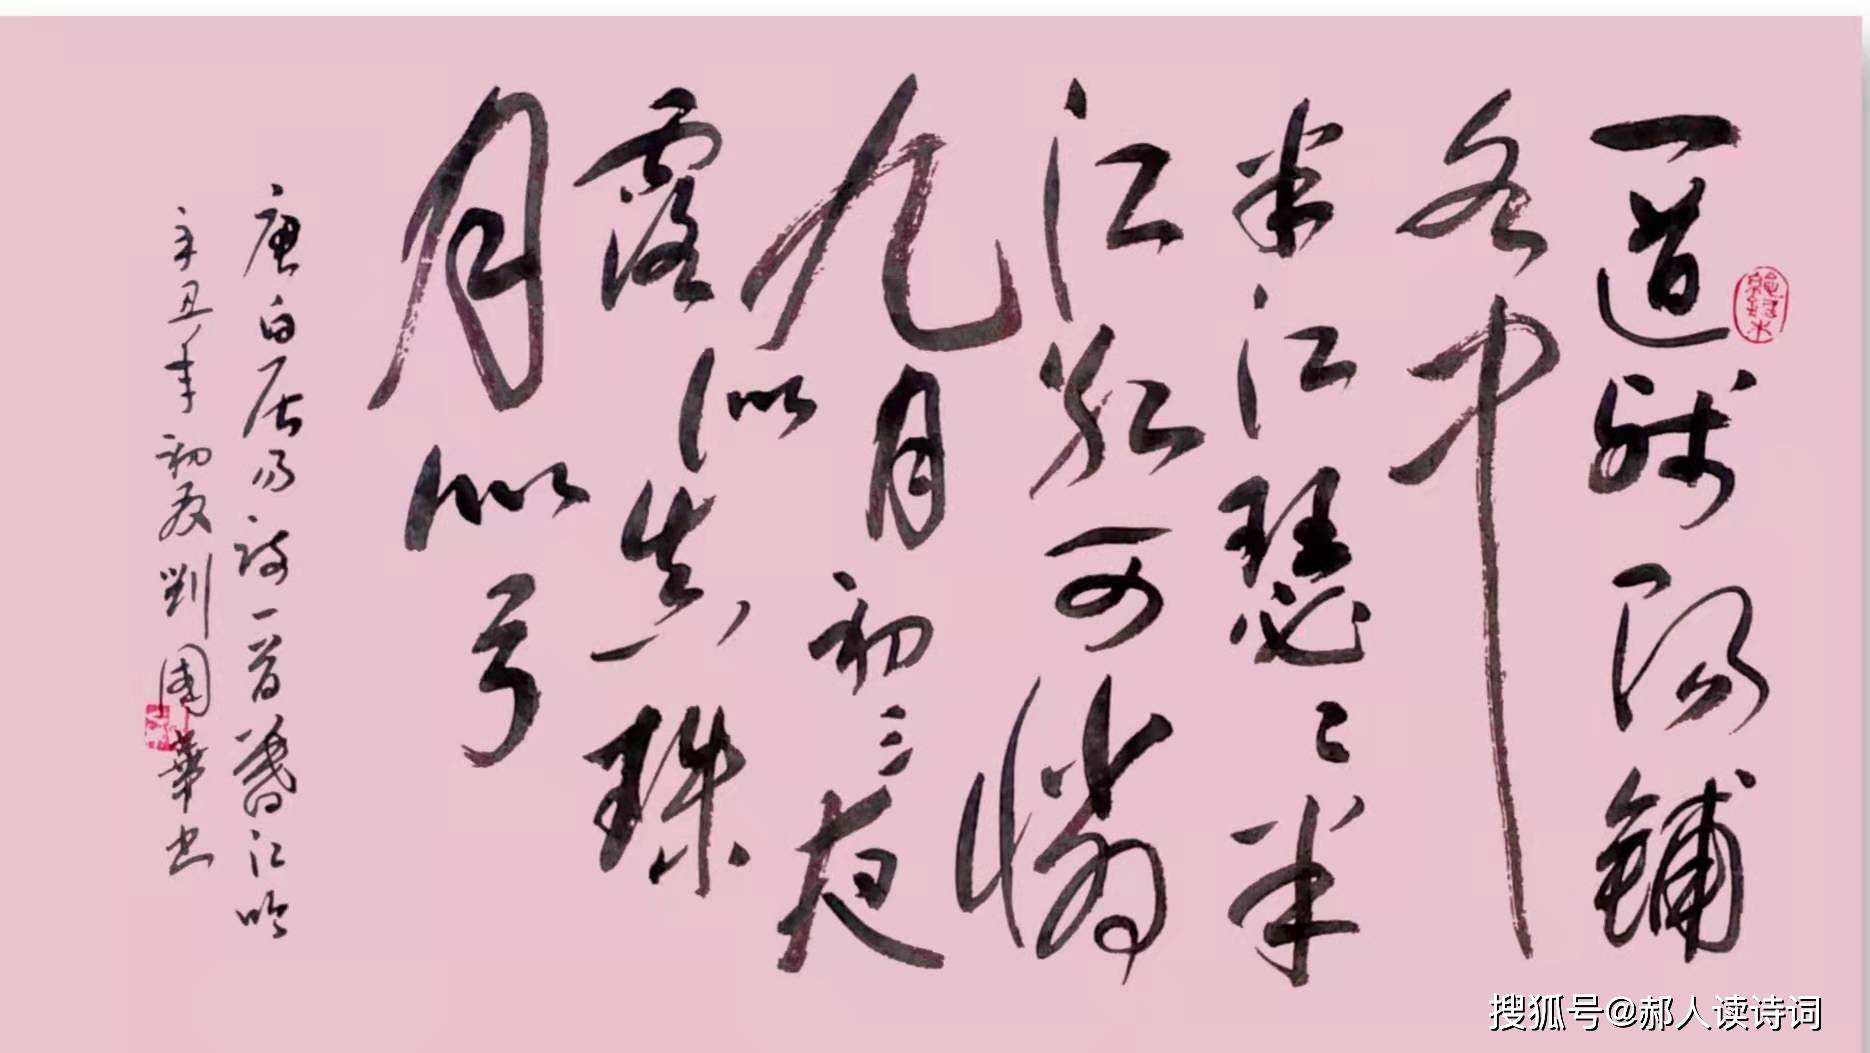 一道残陽鋪
水中
半江瑟々半
江紅可憐
九月初三夜
露似真珠
月似弓
唐白居易詩一首暮江吟
辛丑年初夏劉國華书
搜狐号@郝人读诗词